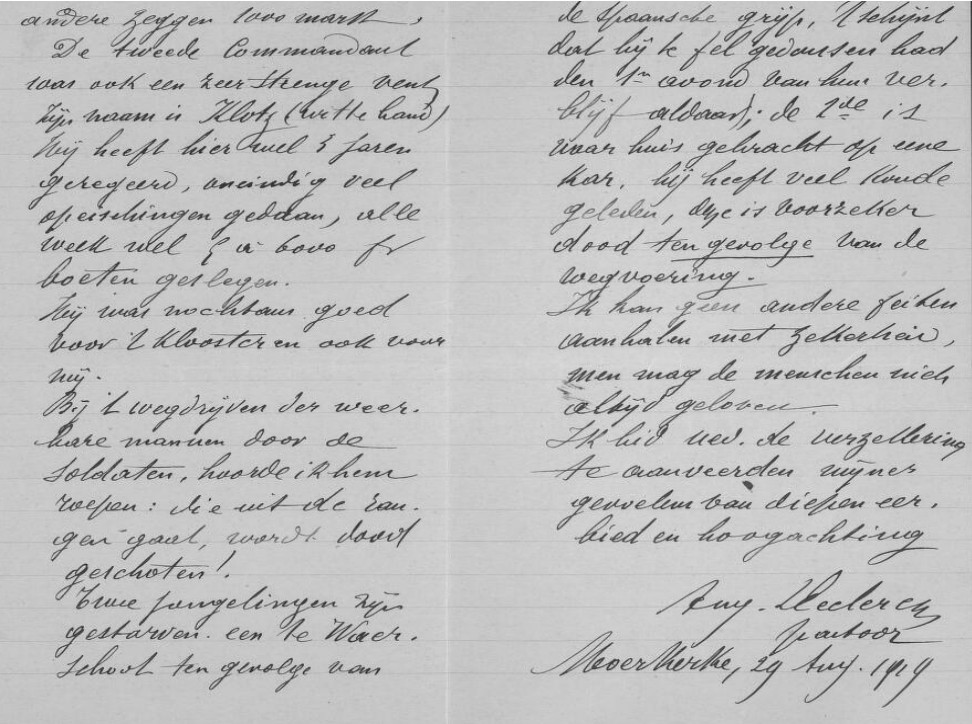 andere zeggen 1000 mark.
De tweede Commandant
was ook een zeer strenge vent
zijn naam is Klotz (witte hand)
Hij heeft hier wel 3 jaren
geregeerd, oneindig veel
opeischingen gedaan, alle
week wel 5 à 6000 fr
boeten geslegen.
Hij was nochtans goed
voor 't Klooster en ook voor
mij.
Bij 't wegdrijven der weer-
bare mannen door de
soldaten, hoorde ik hem
roepen: die uit de ran-
gen gaat, wordt dood
geschoten!
Twee jongelingen zijn
gestorven. een te Waer-
schoot ten gevolge van
de spaansche grijp, 't schijnt
dat hij te fel gedanssen had
den 1n avond van hun ver-
blijf aldaar; de 2de is
naar huis gebracht op eene
kar, hij heeft veel koude
geleden, deze is voorzeker
dood ten gevolge van de
wegvoering.
Ik kan geen andere feiten
aanhalen met zekerheid,
men mag de menschen niet
altijd geloven.
Ik bid Ued. de verzekering
te aanveerden mijner
gevoelens van diepen eer-
bied en hoogachting
Aug. Declerck
pastoor
Moerkerke, 29 Aug. 1919